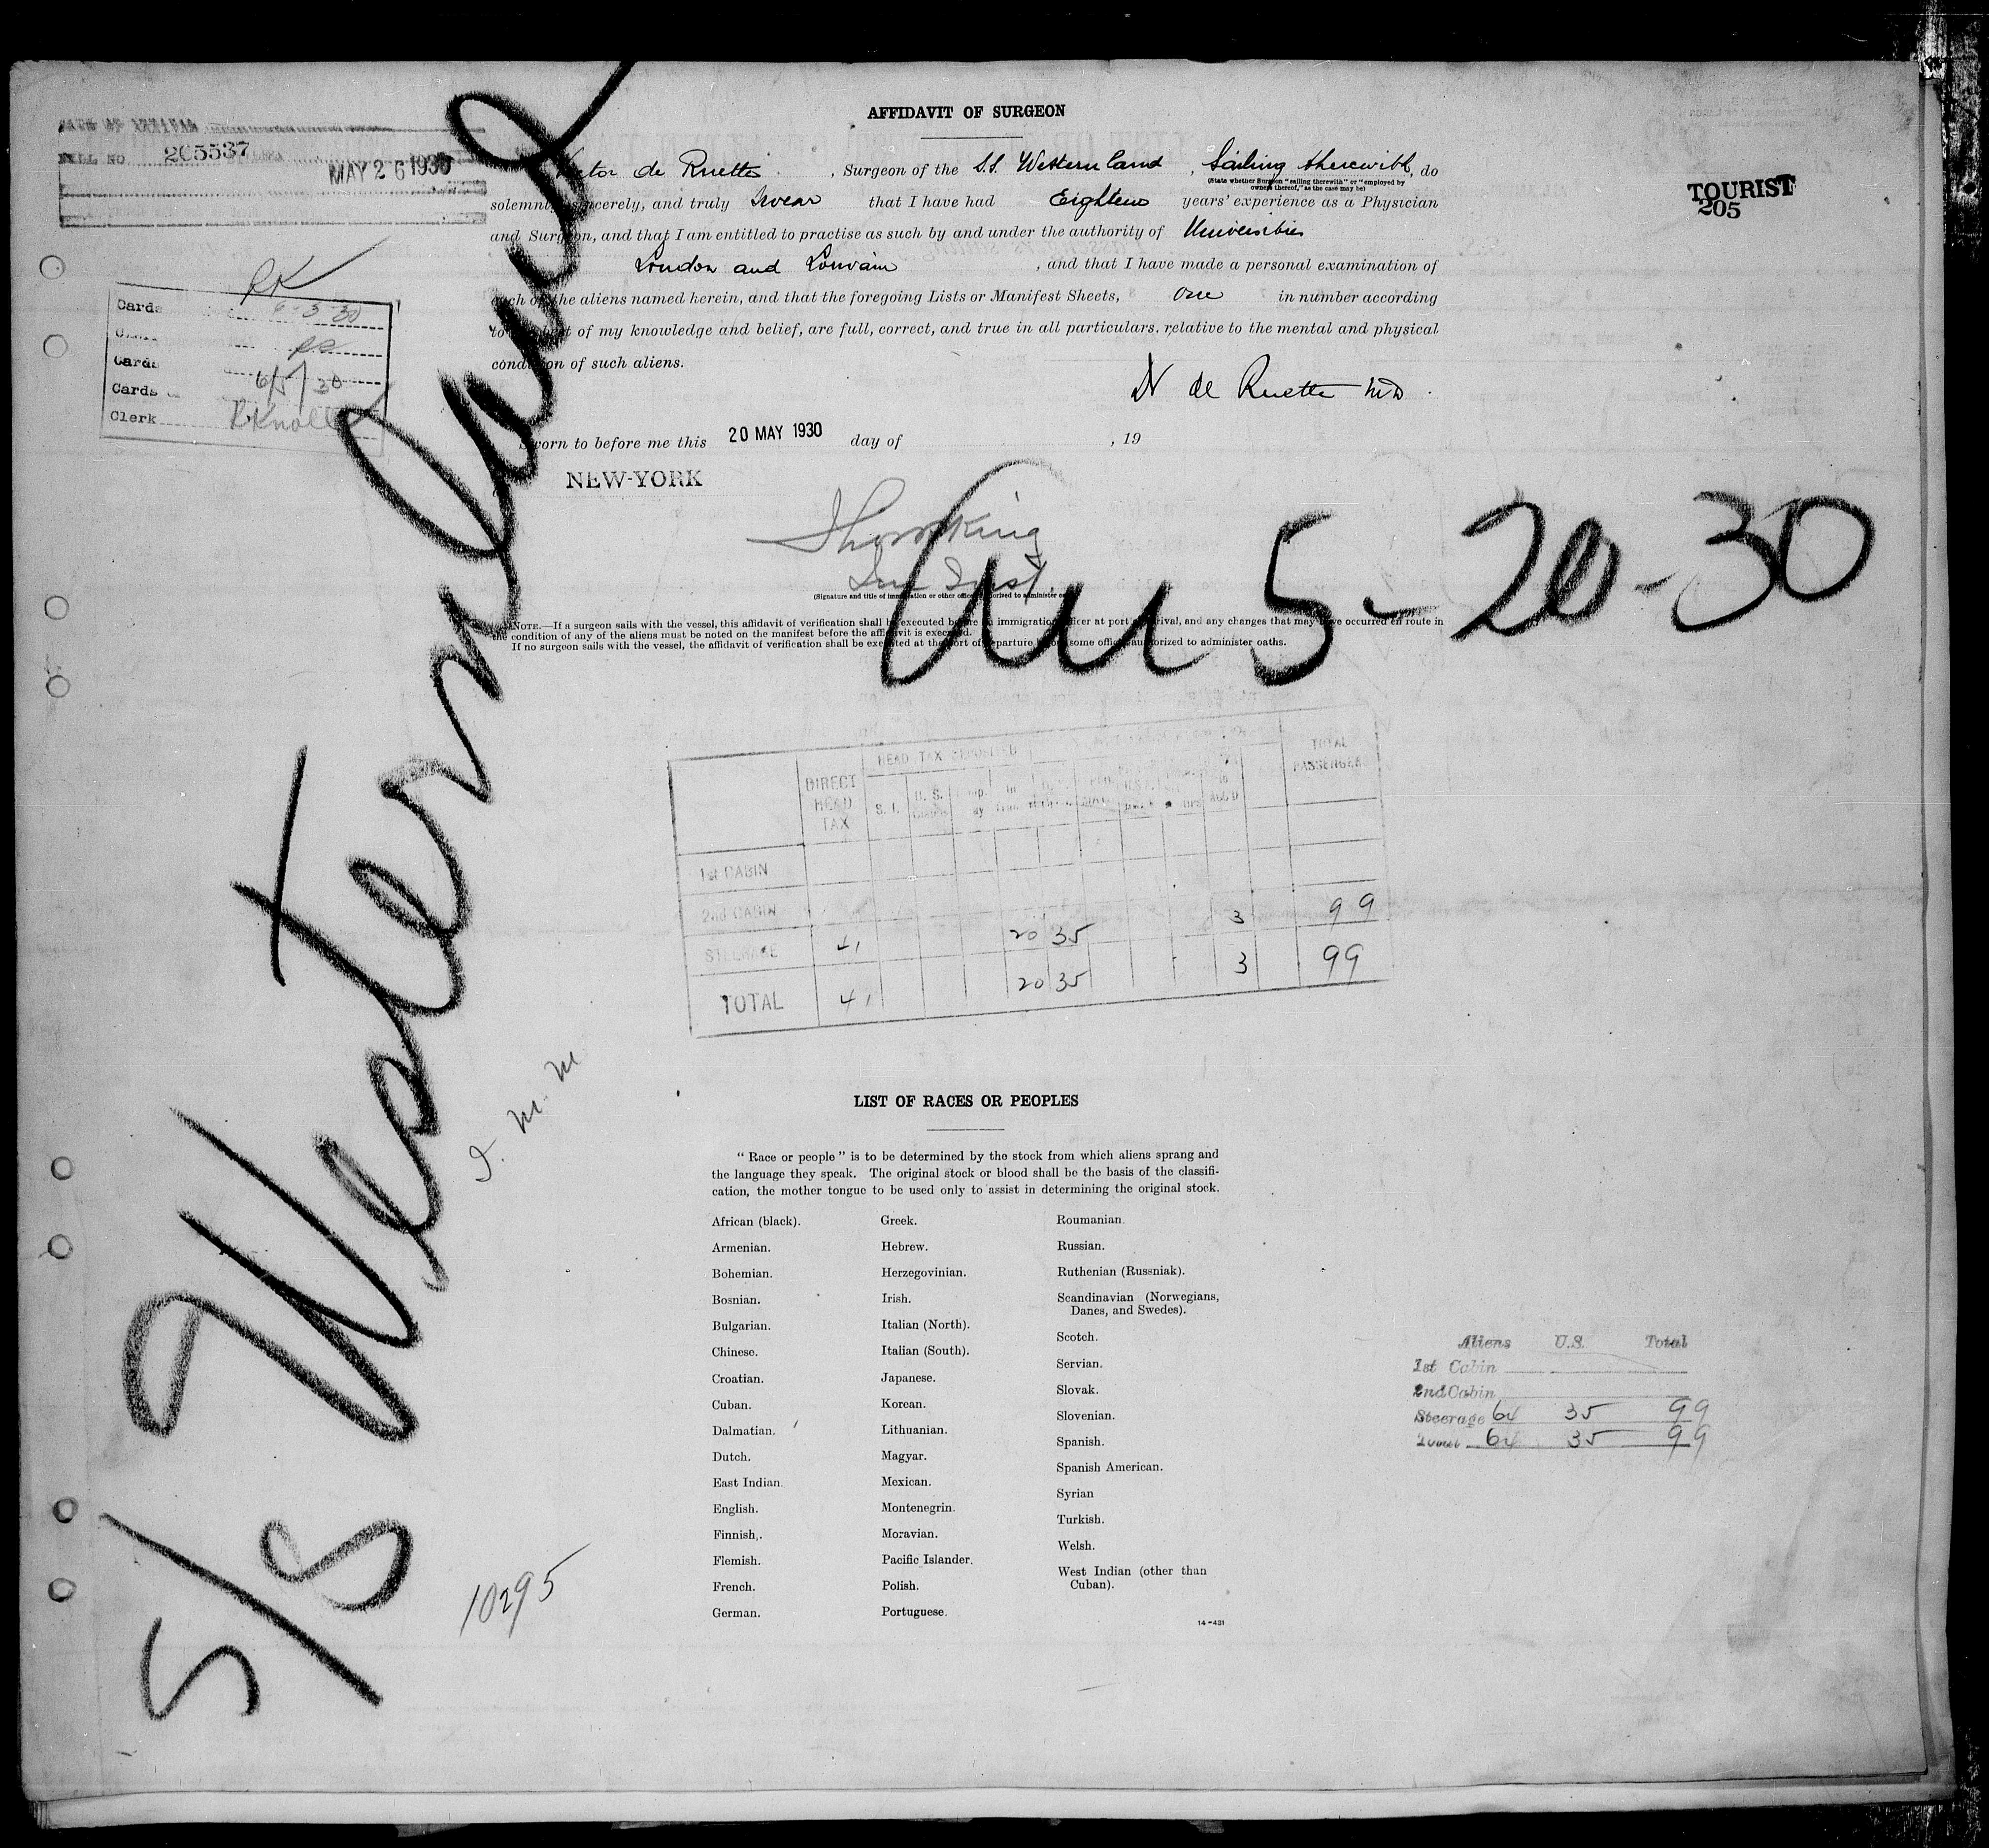 AFFIDAVIT OF SURGEON
DATE OF ARRIVAL
BILL NO 205537
MAY 26 1930
Victor de Ruette, Surgeon of the S.S. Westernland, Sailing therewith, do
(State whether Surgeon "sailing therewith" or "employed by
owners thereof," as the case may be)
TOURIST
205
solemnly, sincerely, and truly Swear that I have had Eighteen years' experience as a Physician
and Surgeon, and that I am entitled to practise as such by and under the authority of Universities
London and Louvain, and that I have made a personal examination of
each of the aliens named herein, and that the foregoing Lists or Manifest Sheets, one in number according
to the best of my knowledge and belief, are full, correct, and true in all particulars, relative to the mental and physical
condition of such aliens.
de Ruette MD.
Sworn to before me this 20 MAY 1930 day of , 19
NEW-YORK
RK
Cards 6-3-30
Cards 6/5/30
Cards
Clerk
Imm Inst.
(Signature and title of immigration or other officer authorized to administer oaths)
S/S Westernland
Arr 5-20-30
NOTE.—If a surgeon sails with the vessel, this affidavit of verification shall be executed before an immigration officer at port of arrival, and any changes that may have occurred en route in
the condition of any of the aliens must be noted on the manifest before the affidavit is executed.
If no surgeon sails with the vessel, the affidavit of verification shall be executed at the port of departure before some officer authorized to administer oaths.
HEAD TAX DEPOSITED
DIRECT HEAD TAX
S. I.
U. S.
TOTAL PASSENGER
1st CABIN
2nd CABIN 3 99
STEERAGE 41 20 35
TOTAL 41 20 35 3 99
LIST OF RACES OR PEOPLES
"Race or people" is to be determined by the stock from which aliens sprang and
the language they speak. The original stock or blood shall be the basis of the classifi-
cation, the mother tongue to be used only to assist in determining the original stock.
African (black).
Armenian.
Bohemian.
Bosnian.
Bulgarian.
Chinese.
Croatian.
Cuban.
Dalmatian.
Dutch.
East Indian.
English.
Finnish.
Flemish.
French.
German.
Greek.
Hebrew.
Herzegovinian.
Irish.
Italian (North).
Italian (South).
Japanese.
Korean.
Lithuanian.
Magyar.
Mexican.
Montenegrin.
Moravian.
Pacific Islander.
Polish.
Portuguese.
Roumanian.
Russian.
Ruthenian (Russniak).
Scandinavian (Norwegians,
Danes, and Swedes).
Scotch.
Servian.
Slovak.
Slovenian.
Spanish.
Spanish American.
Syrian
Turkish.
Welsh.
West Indian (other than
Cuban).
14-421
Aliens U.S. Total
1st Cabin
2nd Cabin
Steerage 64 35 99
Total 64 35 99
10295